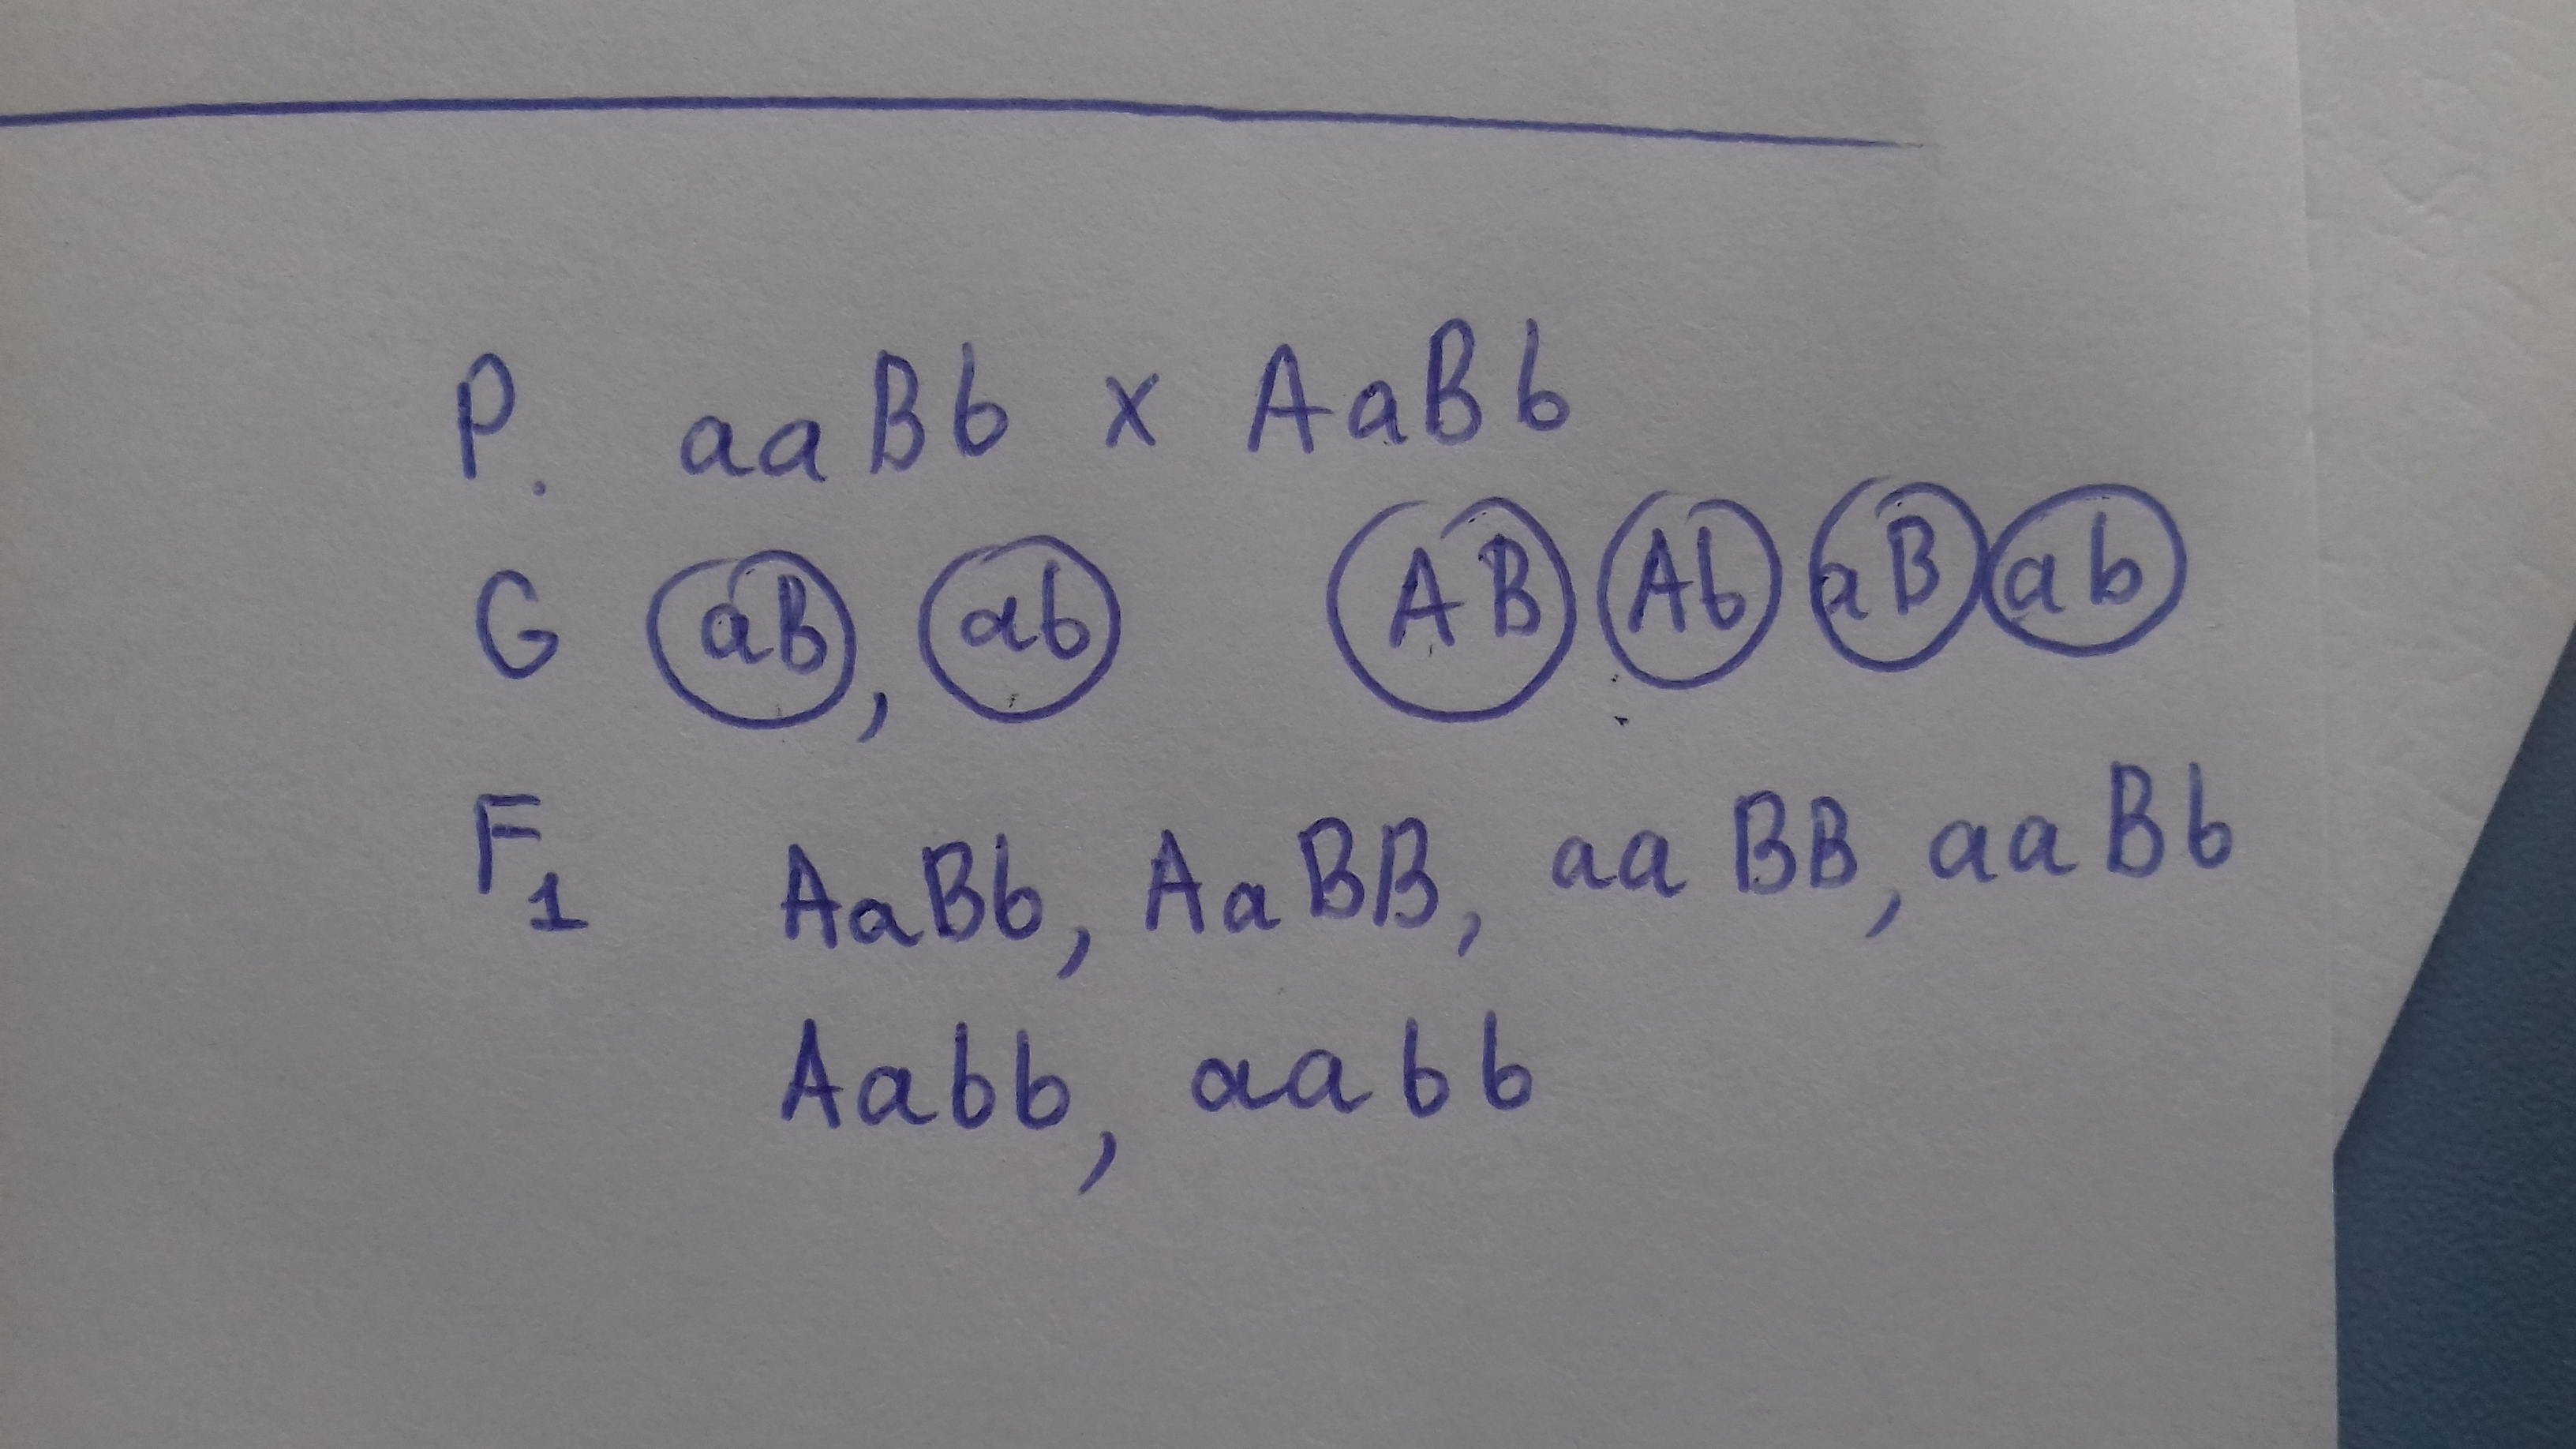 P. aaBb x AaBb
G aB, ab AB Ab aB ab
F1 AaBb, AaBB, aaBB, aaBb
Aabb, aabb